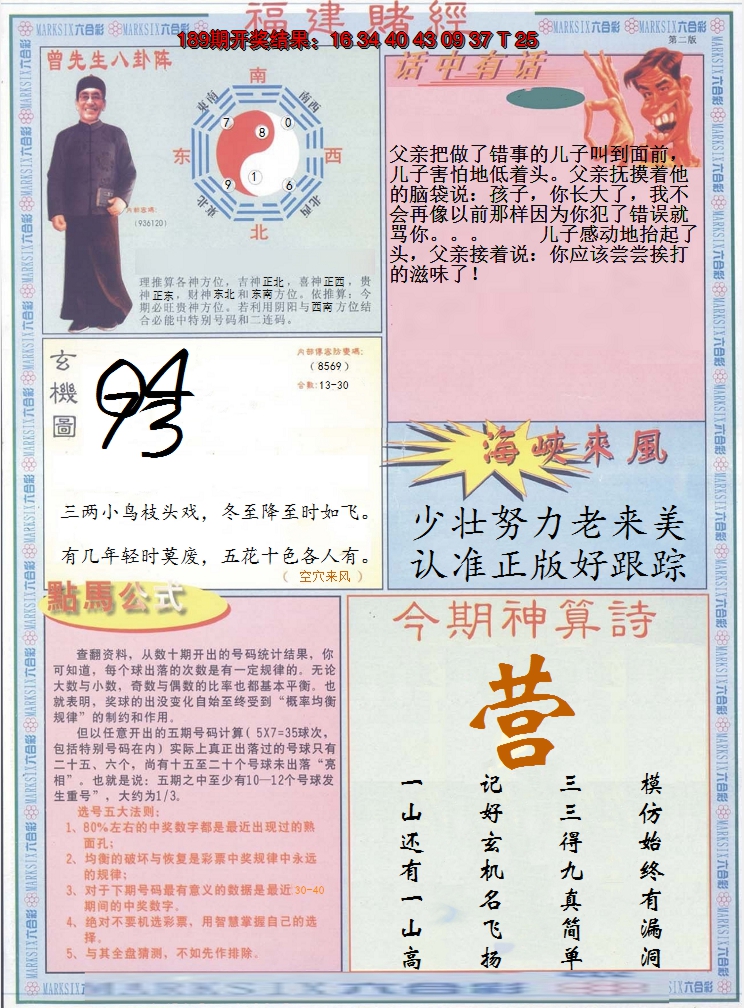 福建賭經
189期开奖结果：16 34 40 43 09 37 T 25
第二版
MARKSIX六合彩
曾先生八卦阵
南
东南
南西
7
8
0
东
西
9
1
6
东北
北西
北
内部密碼:
(936120)
理推算各神方位，吉神正北，喜神正西，贵
神正东，财神东北和东南方位。依推算：今
期必旺贵神方位。若利用阴阳与西南方位结
合必能中特别号码和二连码。
话中有话
父亲把做了错事的儿子叫到面前，
儿子害怕地低着头。父亲抚摸着他
的脑袋说：孩子，你长大了，我不
会再像以前那样因为你犯了错误就
骂你。。。 儿子感动地抬起了
头，父亲接着说：你应该尝尝挨打
的滋味了！
玄機圖
94
73
(8569)
合数:13-30
三两小鸟枝头戏，冬至降至时如飞。
有几年轻时莫废，五花十色各人有。
（ 空穴来风 ）
海峽來風
少壮努力老来美
认准正版好跟踪
點馬公式
查翻资料，从数十期开出的号码统计结果，你
可知道，每个球出落的次数是有一定规律的。无论
大数与小数，奇数与偶数的比率也都基本平衡。也
就表明，奖球的出没变化自始至终受到“概率均衡
规律”的制约和作用。
但以任意开出的五期号码计算( 5X7=35球次，
包括特别号码在内) 实际上真正出落过的号球只有
二十五、六个，尚有十五至二十个号球未出落“亮
相”。也就是说：五期之中至少有10—12个号球发
生重号”，大约为1/3。
选号五大法则：
1、80%左右的中奖数字都是最近出现过的熟
面孔；
2、均衡的破坏与恢复是彩票中奖规律中永远
的规律；
3、对于下期号码最有意义的数据是最近30-40
期间的中奖数字。
4、绝对不要机选彩票，用智慧掌握自己的选
择。
5、与其全盘猜测，不如先作排除。
今期神算詩
营
一山还有一山高
记好玄机名飞扬
三三得九真简单
模仿始终有漏洞